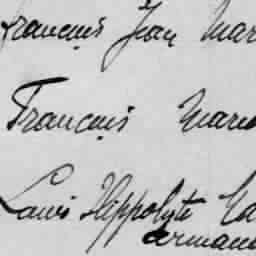 François Jean Mar
François Marie
Louis Hippolyte
Armand